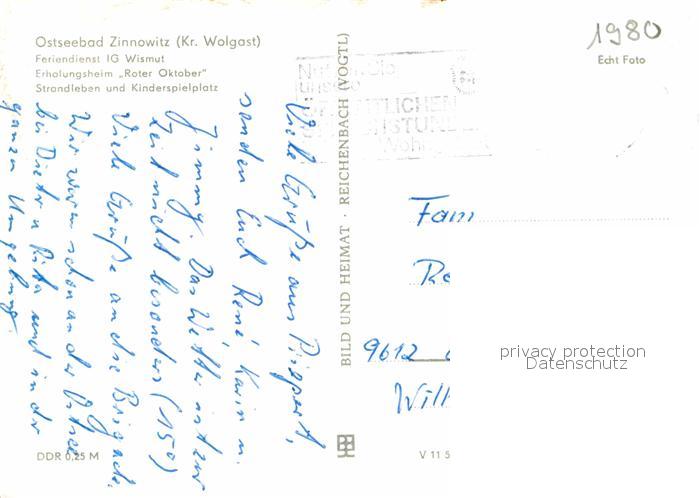 Ostseebad Zinnowitz (Kr. Wolgast)
Feriendienst IG Wismut
Erholungsheim „Roter Oktober"
Strandleben und Kinderspielplatz
1980
Echt Foto
Viele Grüße aus
senden Euch René, Karin u.
Jimmy. Das Wetter ist zur
Zeit nicht besonders (15°)
Viele Grüße an die Brigade.
Wir waren schon an der Ostsee
bei Dieter u. Rita und in der
ganzen Umgebung.
BILD UND HEIMAT · REICHENBACH (VOGTL)
Fam
9612
Will
privacy protection
Datenschutz
DDR 0,25 M
V 11 5